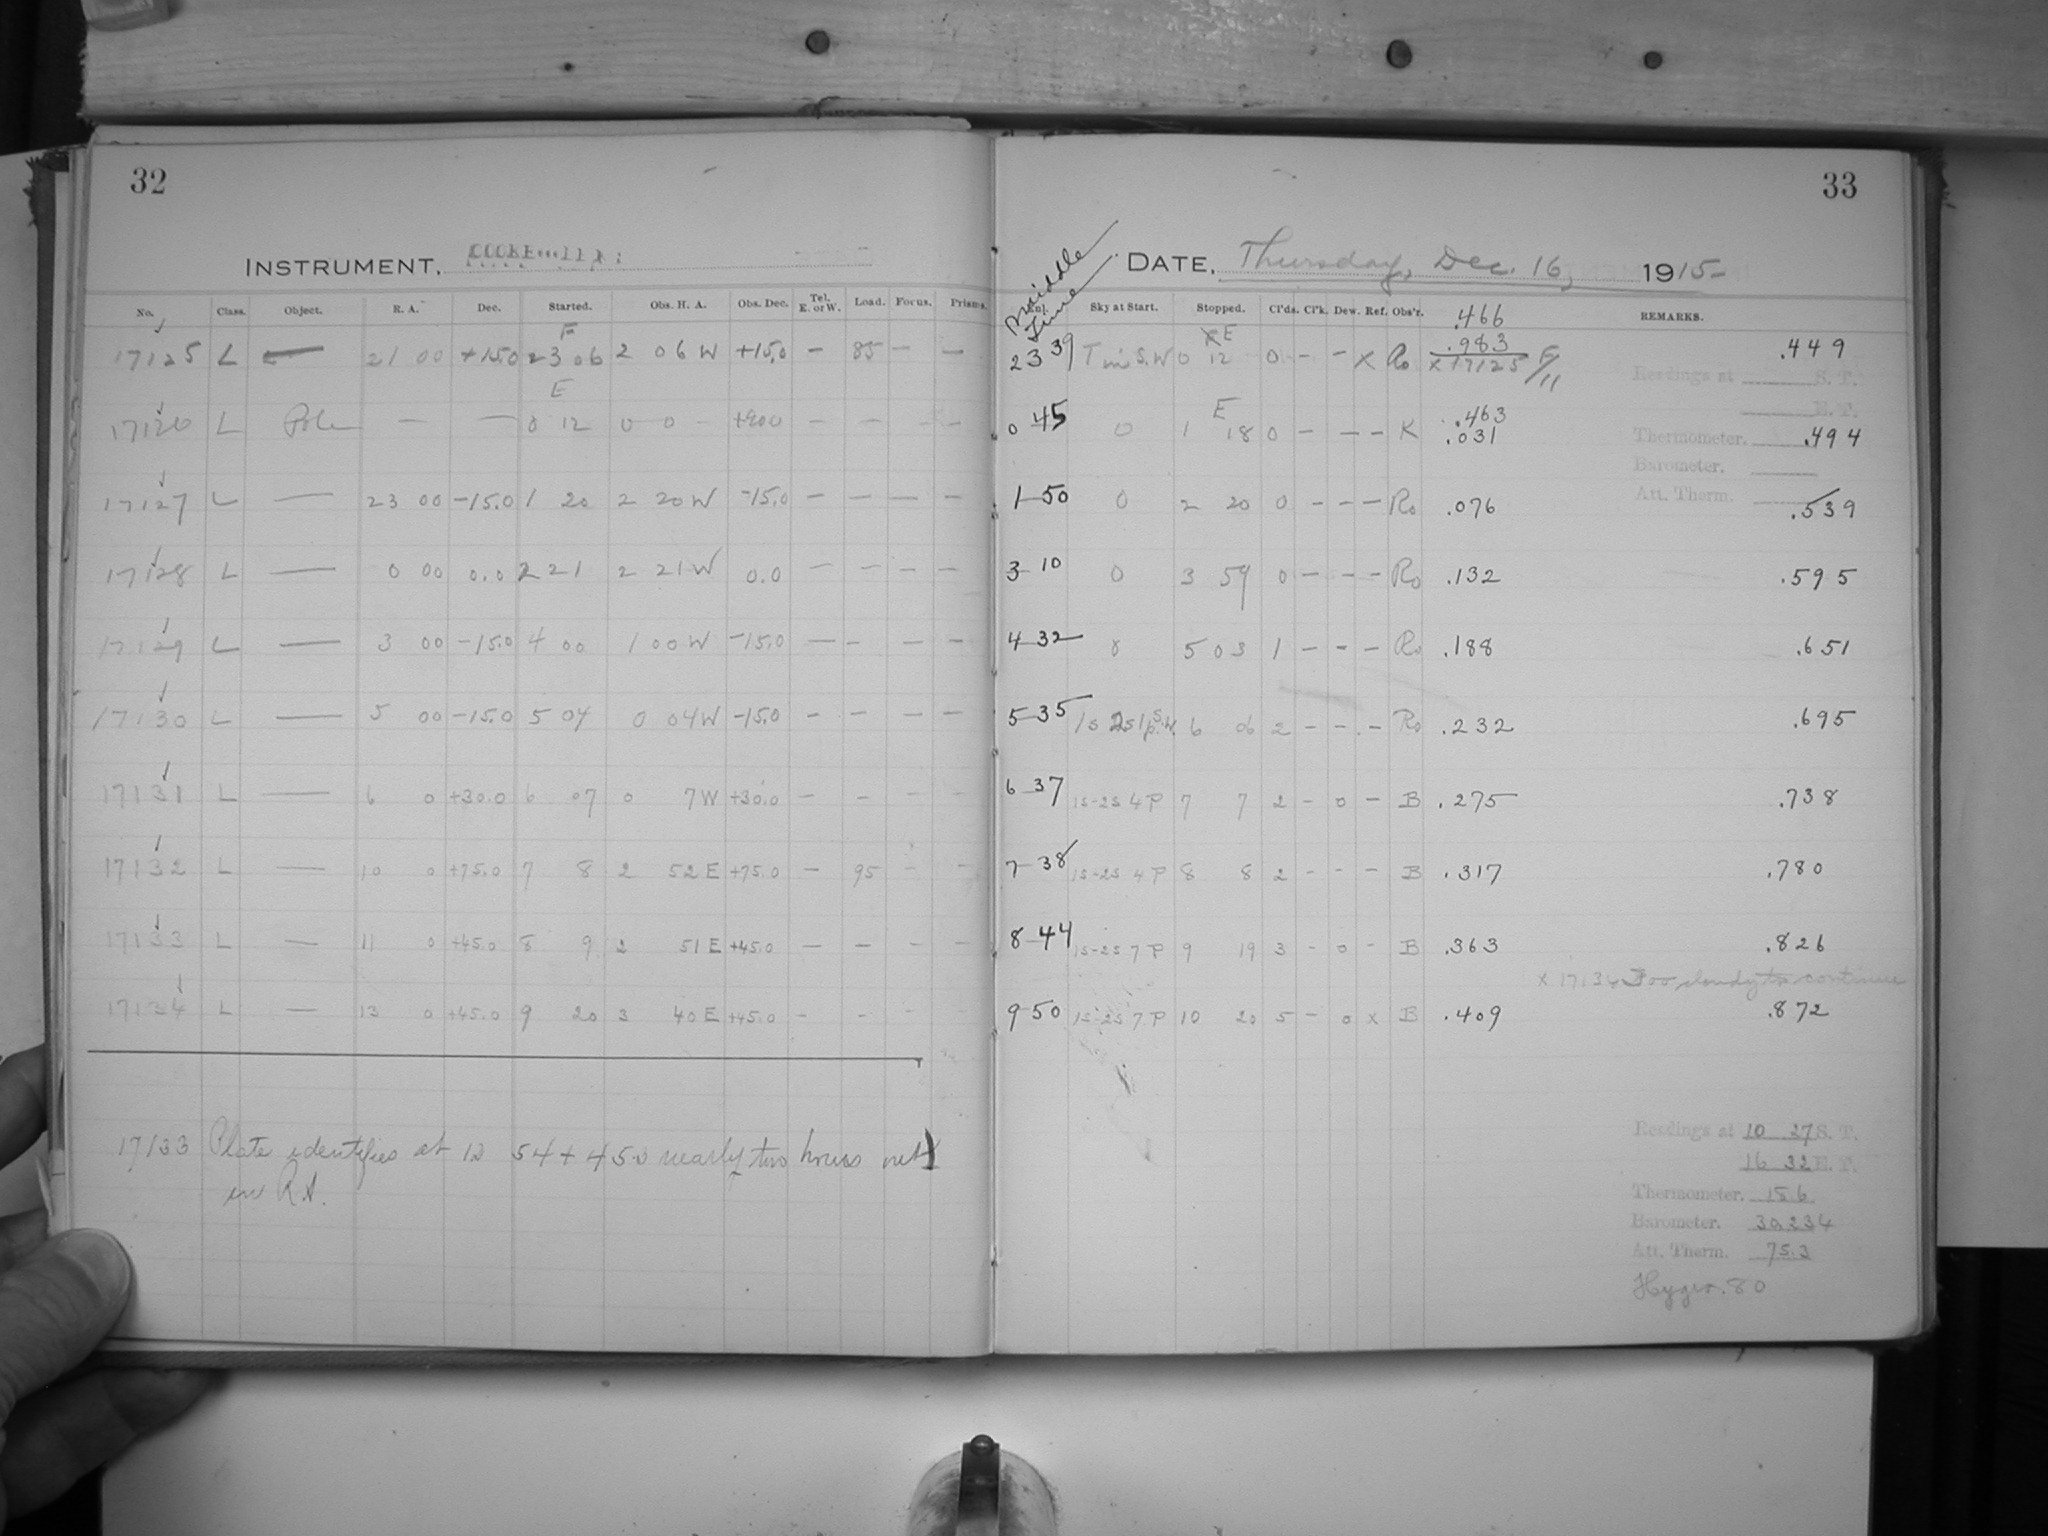 32
INSTRUMENT.
No. Class. Object. R. A. Dec. Started. Obs. H. A. Obs. Dec. Tel. E. or W. Load. Focus. Prisms.
F
17125 L — 21 00 +15.0 23 06 2 06 W +15.0 — 85 — —
E
17126 L Pole — — 0 12 0 0 +90.0 — — — —
17127 L — 23 00 -15.0 1 20 2 20 W -15.0 — — — —
17128 L — 0 00 0.0 2 21 2 21 W 0.0 — — — —
17129 L — 3 00 -15.0 4 00 1 00 W -15.0 — — — —
17130 L — 5 00 -15.0 5 04 0 04 W -15.0 — — — —
17131 L — 6 0 +30.0 6 07 0 7 W +30.0 — — — —
17132 L — 10 0 +75.0 7 8 2 52 E +75.0 — 95 — —
17133 L — 11 0 +45.0 8 9 2 51 E +45.0 — — — —
17134 L — 13 0 +45.0 9 20 3 40 E +45.0 — — — —
17133 Plate identifies at 12 54 + 45.0 nearly two hours out
in R.A.
33
Middle Time
DATE. Thursday, Dec. 16, 1915
Sky at Start. Stopped. Cl'ds. Cl'k. Dew. Ref. Obs'r. REMARKS.
.466
.983
E
23 39 S.W 0 12 0 — — X Ro X 17125 F/11 .449
Readings at S. T.
E. T.
E .463
0 45 0 1 18 0 — — — K .031 .494
Thermometer.
Barometer.
Att. Therm.
1 50 0 2 20 0 — — — Ro .076 .539
3 10 0 3 59 0 — — — Ro .132 .595
4 32 0 5 03 1 — — — Ro .188 .651
5 35 6 06 2 — — — Ro .232 .695
6 37 1s-2s 4 P 7 7 2 - 0 - B .275 .738
7 38 1s-2s 4 P 8 8 2 - - - B .317 .780
8 44 1s-2s 7 P 9 19 3 - 0 - B .363 .826
X 17134 Too cloudy to continue
9 50 1s-2s 7 P 10 20 5 - 0 X B .409 .872
Readings at 10 27 S. T.
16 32 E. T.
Thermometer. 15.6
Barometer. 30.234
Att. Therm. 75.3
Hygro. 80